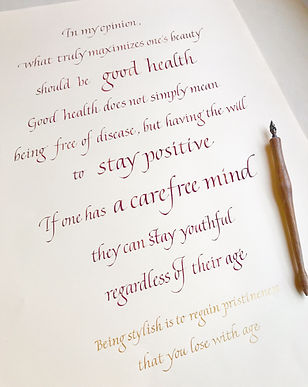 In my opinion,
what truly maximizes one's beauty
should be good health
Good health does not simply mean
being free of disease, but having the will
to stay positive
If one has a carefree mind
they can stay youthful
regardless of their age
Being stylish is to regain pristineness
that you lose with age